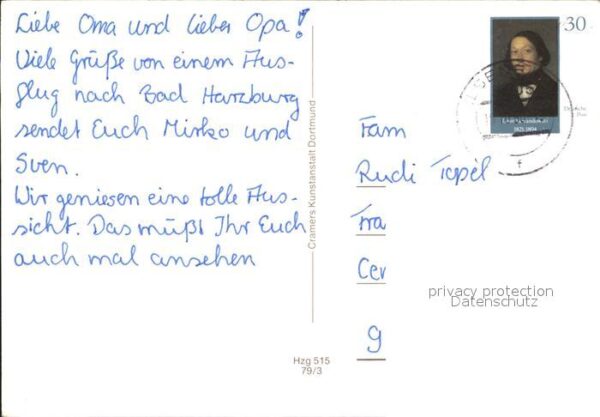 Liebe Oma und lieber Opa!
Viele Grüße von einem Aus-
flug nach Bad Harzburg
sendet Euch Mirko und
Sven.
Wir geniesen eine tolle Aus-
sicht. Das müßt Ihr Euch
auch mal ansehen
Cramers Kunstanstalt Dortmund
Hzg 515
79/3
30
Fam
Rudi Topél
Fra
Cer
g
privacy protection
Datenschutz